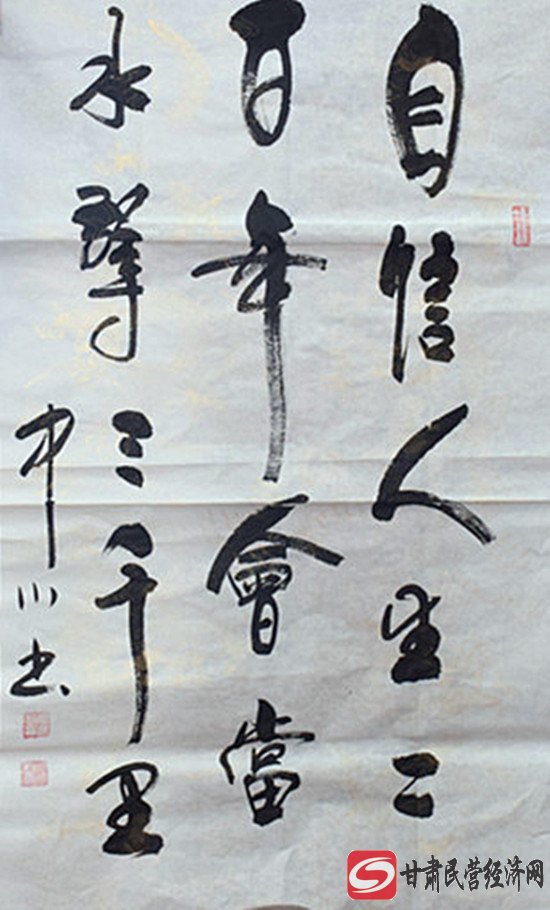 自信人生二
百年會當
水擊三千里
中川书
甘肃民营经济网